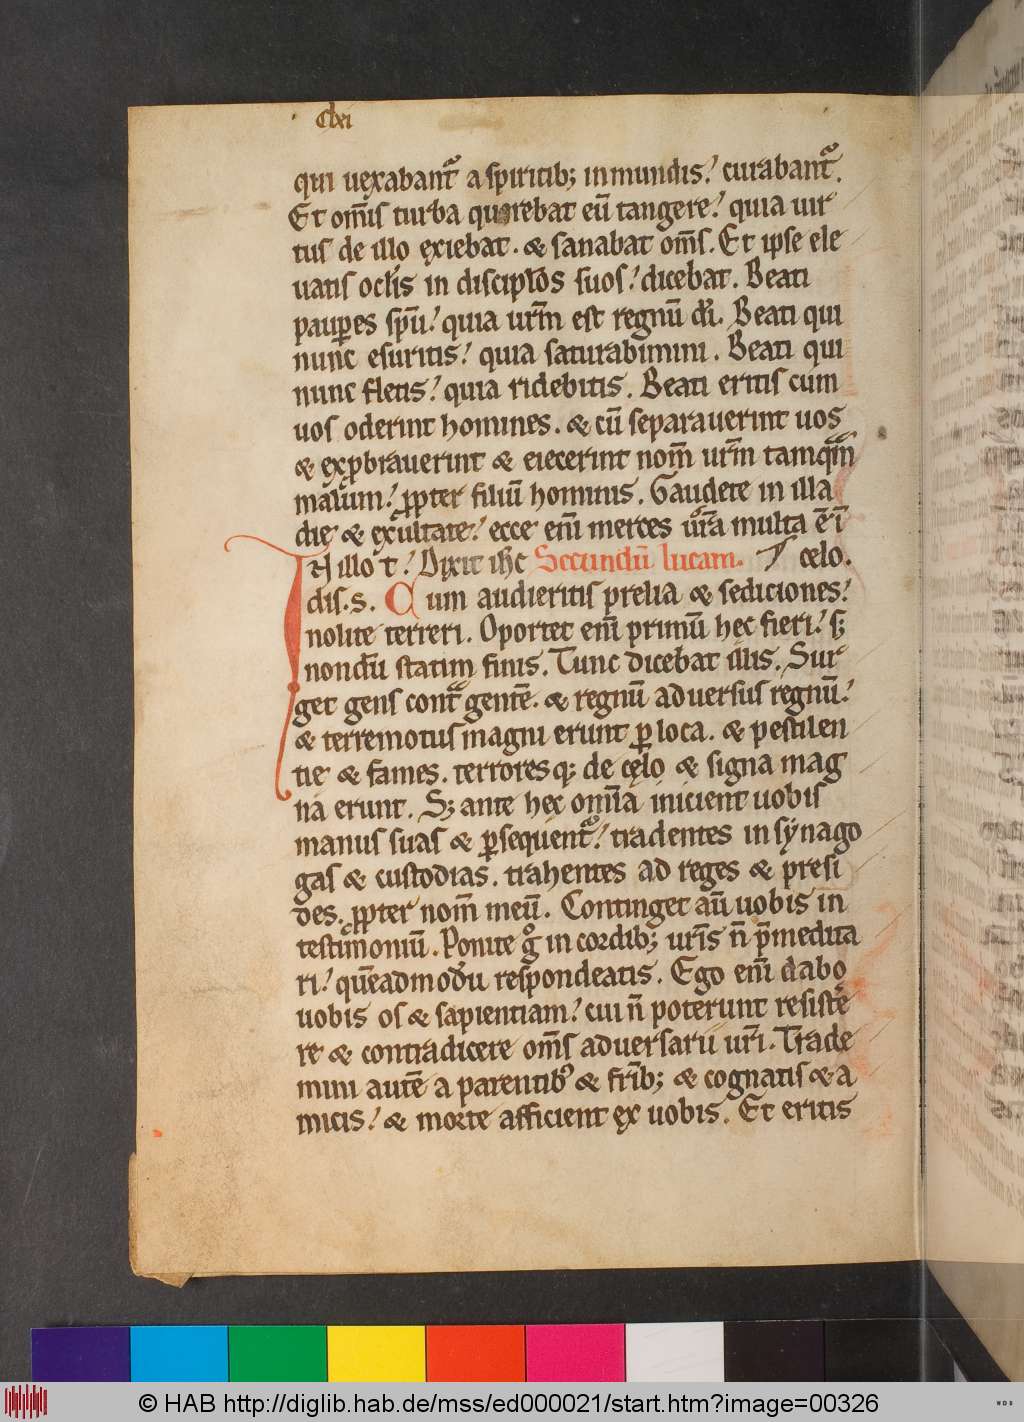 Clxi
qui uexabant᷑ a spiritib; inmundis. curabant᷑.
Et om̅is turba querebat eu̅ tangere. quia uir
tus de illo exiebat. & sanabat om̅s. Et ipse ele
uatis oclis in discip̅los suos. dicebat. Beati
paup̲es sp̅u. quia ur̅m est regnu̅ di̅. Beati qui
nunc esuritis. quia saturabimini. Beati qui
nunc fletis. quia ridebitis. Beati eritis cum
uos oderint homines. & cu̅ separauerint uos
& exp̲brauerint & eiecerint nom̅ ur̅m tamqm̅
malum. pp̲ter filiu̅ hominis. Gaudete in illa
die & exultate. ecce eni̅ merces ur̅a multa e̅ i̅
In illo t̅. Dixit ihc Secundu̅ lucam. celo.
dis.s. Cum audieritis prelia & sediciones.
nolite terreri. Oportet eni̅ primu̅ hec fieri. s;
nondu̅ statim finis. Tunc dicebat illis. Sur
get gens cont᷑ gente̅. & regnu̅ aduersus regnu̅.
& terremotus magni erunt p̲ loca. & pestilen
tie & fames. terroresq; de celo & signa mag
na erunt. S; ante hec om̅ia inicient uobis
manus suas & p̲sequent᷑. tradentes in synago
gas & custodias. trahentes ad reges & presi
des. pp̲ter nom̅ meu̅. Continget au̅ uobis in
testimoniu̅. Ponite gͦ in cordib; ur̅is n̅ p̅medita
ri. que̅admodu̅ respondeatis. Ego eni̅ dabo
uobis os & sapientiam. cui n̅ poterunt resiste
re & contradicere om̅s aduersarii ur̅i. Trade
mini aute̅ a parentibꝰ & fr̅ib; & cognatis & a
micis. & morte afficient ex uobis. Et eritis
© HAB http://diglib.hab.de/mss/ed000021/start.htm?image=00326